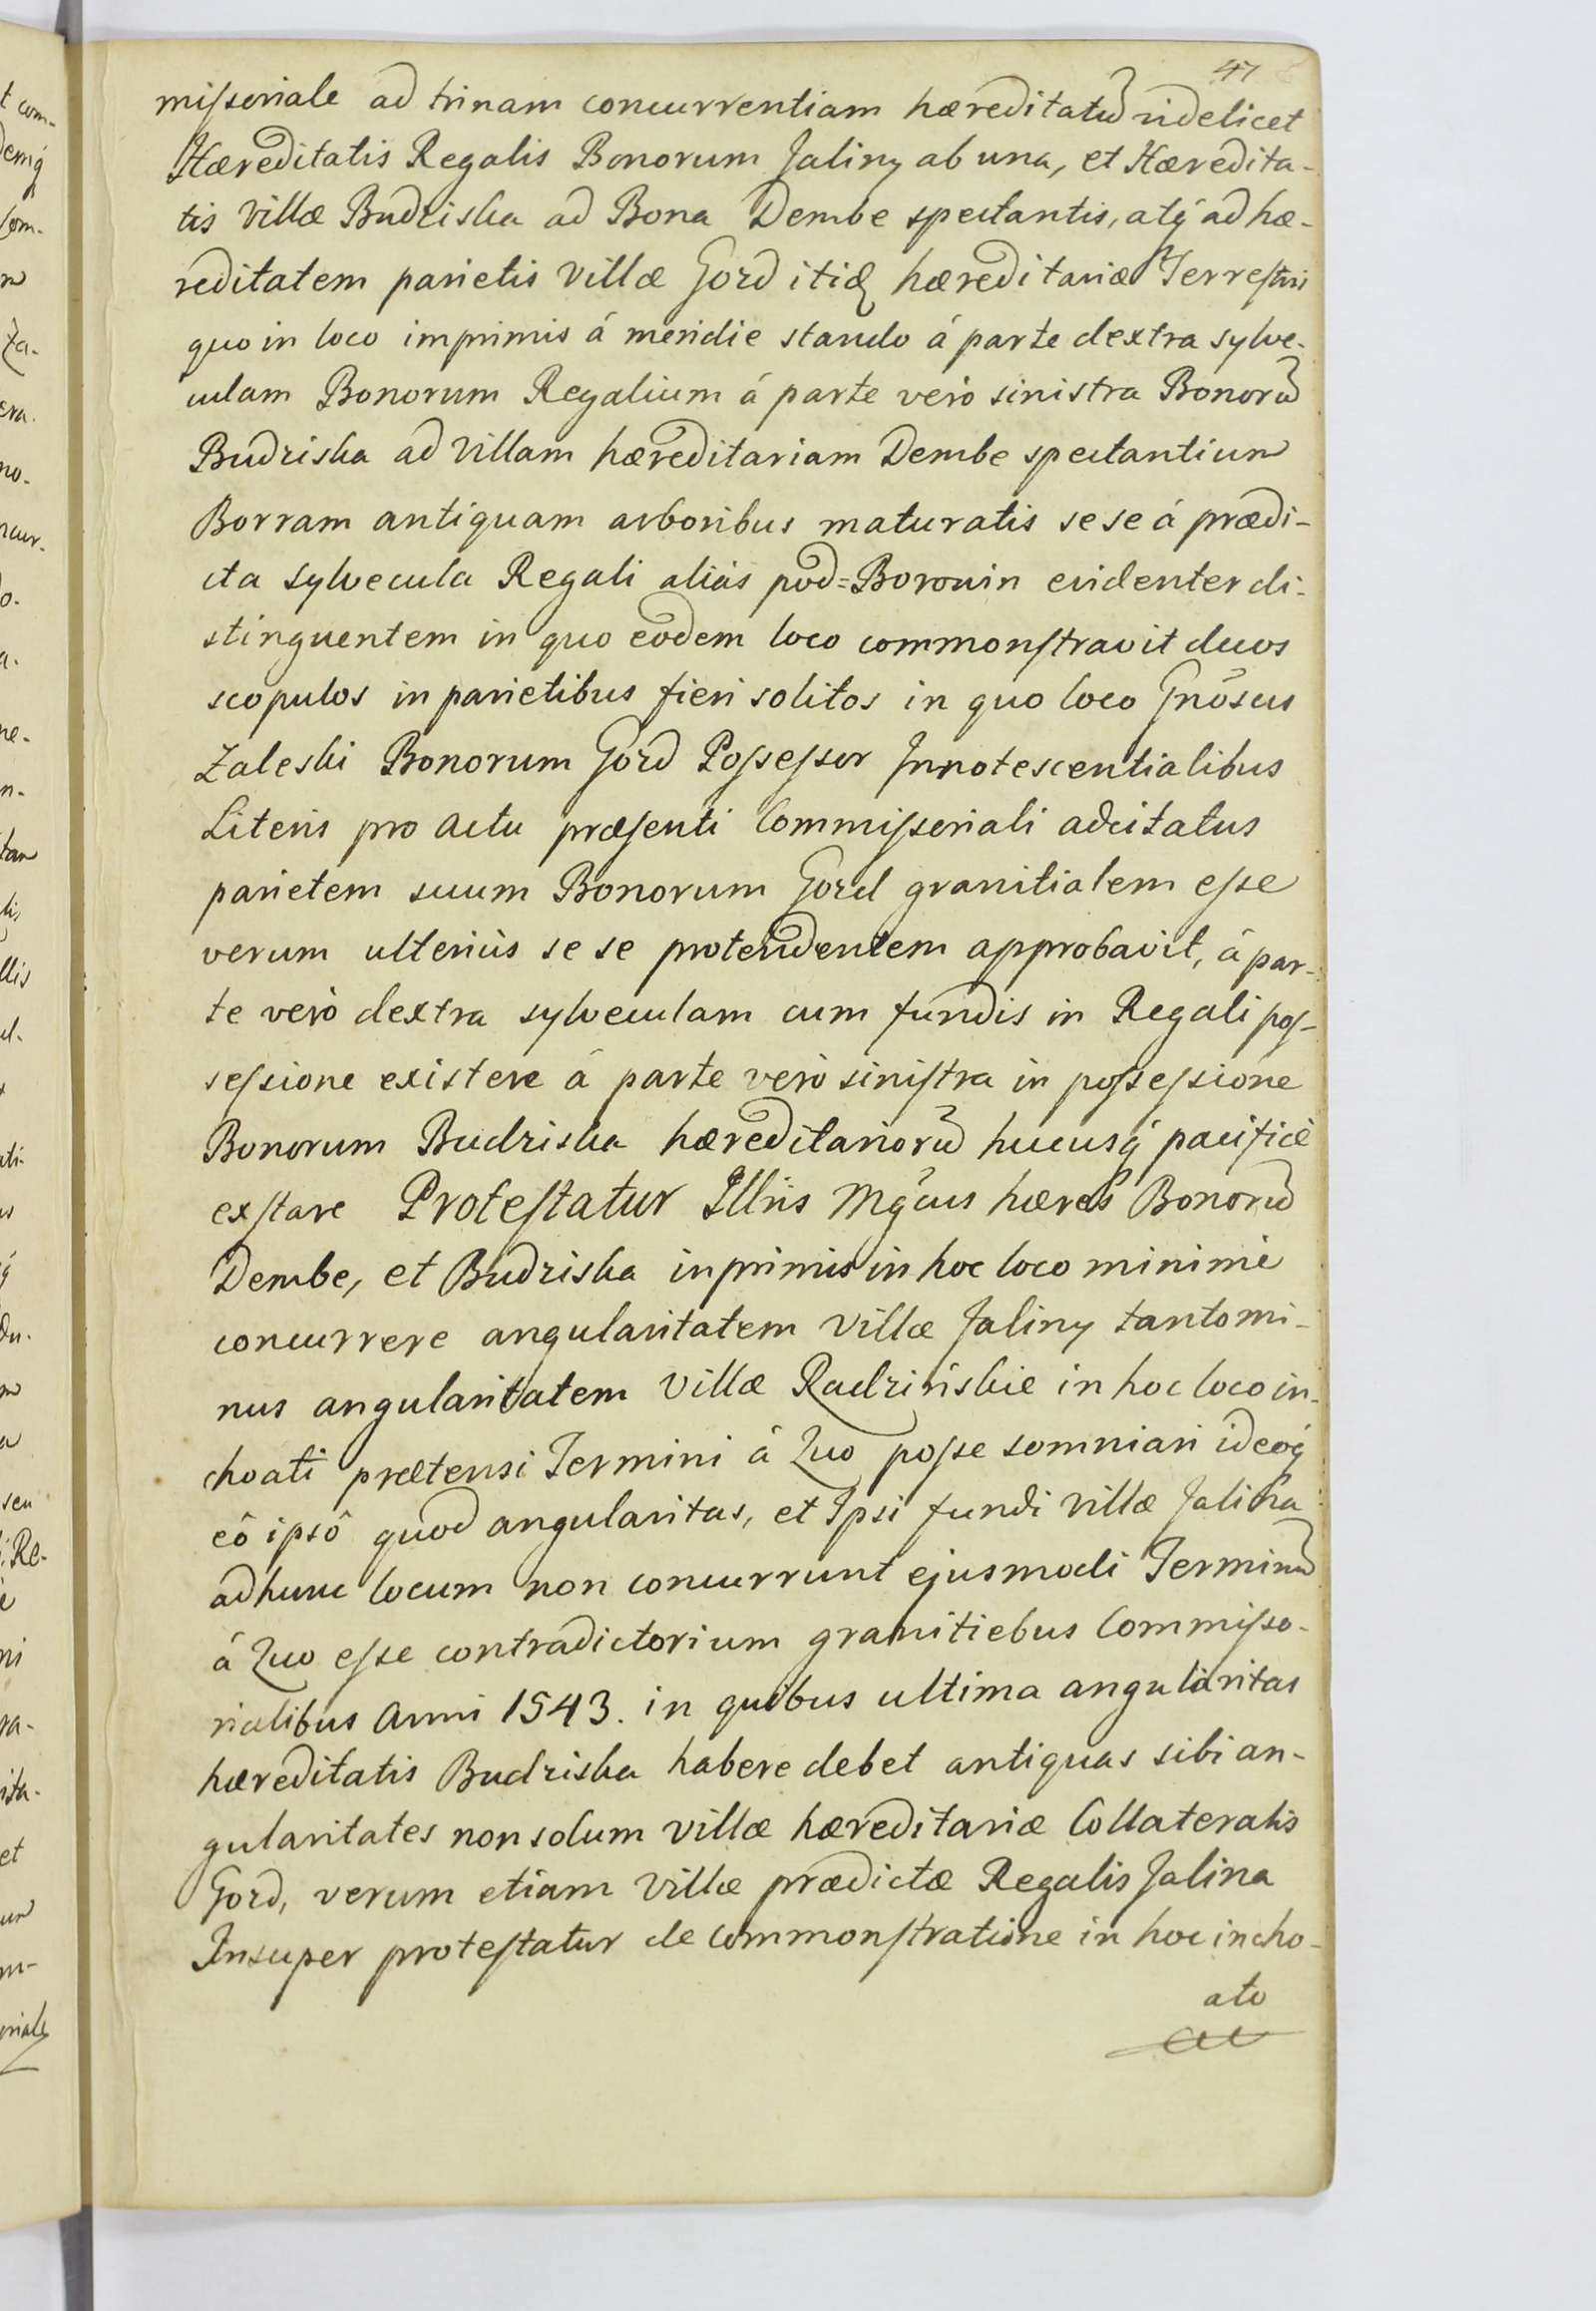 47
misseriale ad trinam concurrentiam hæreditatũ videlicet
Hæreditatis Regalis Bonorum Jaliny ab una, et Hæredita-
tis Villæ Budziska ad Bona Dembe spectantis, atq́ ad hæ-
reditatem parietis Villæ Gozd itid hæreditariæ Terrestris
quo in loco imprimis á meridie stando á parte dextra sylve-
culam Bonorum Regalium á parte verò sinistra Bonorũ
Budziska ad Villam hæreditariam Dembe spectantium
Borram antiquam arboribus maturatis sese á prædi-
cta sylvecula Regali aliás pod=Borowin evidenter di-
stinguentem in quo eodem loco commonstravit duos
scopulos in parietibus fieri solitos in quo loco Gnõsus
Zaleski Bonorum Gozd Possessor Innotescentialibus
Literis pro Actu præsenti Commisseriali adcitatus
parietem suum Bonorum Gozd granitialem esse
verum ulteriùs se se protendentem approbavit, á par-
te verò dextra sylveculam cum fundis in Regali pos-
sessione existere á parte verò sinistra in possessione
Bonorum Budziska hæreditariorũ hucusq́ pacificè
exstare Protestatur Illris Mgcus hæres Bonorũ
Dembe, et Budziska inprimis in hoc loco minimè
concurrere angularitatem Villæ Jaliny tantomi-
nus angularitatem Villæ Radzińskie in hoc loco in-
choati prætensi Termini á Quo posse somniari ideoq́
eô ipsô quod angularitas, et Ipsi fundi Villæ Jalina
adhunc locum non concurrunt ejusmodi Terminũ
á Quo esse contradictorium granitiebus Commisso-
rialibus Anni 1543. in quibus ultima angularitas
hæreditatis Budziska habere debet antiquas sibi an-
gularitates non solum Villæ hæreditariæ Collateralis
Gozd, verum etiam Villæ prædictæ Regalis Jalina
Insuper protestatur de Commonstratione in hoc incho-
ato